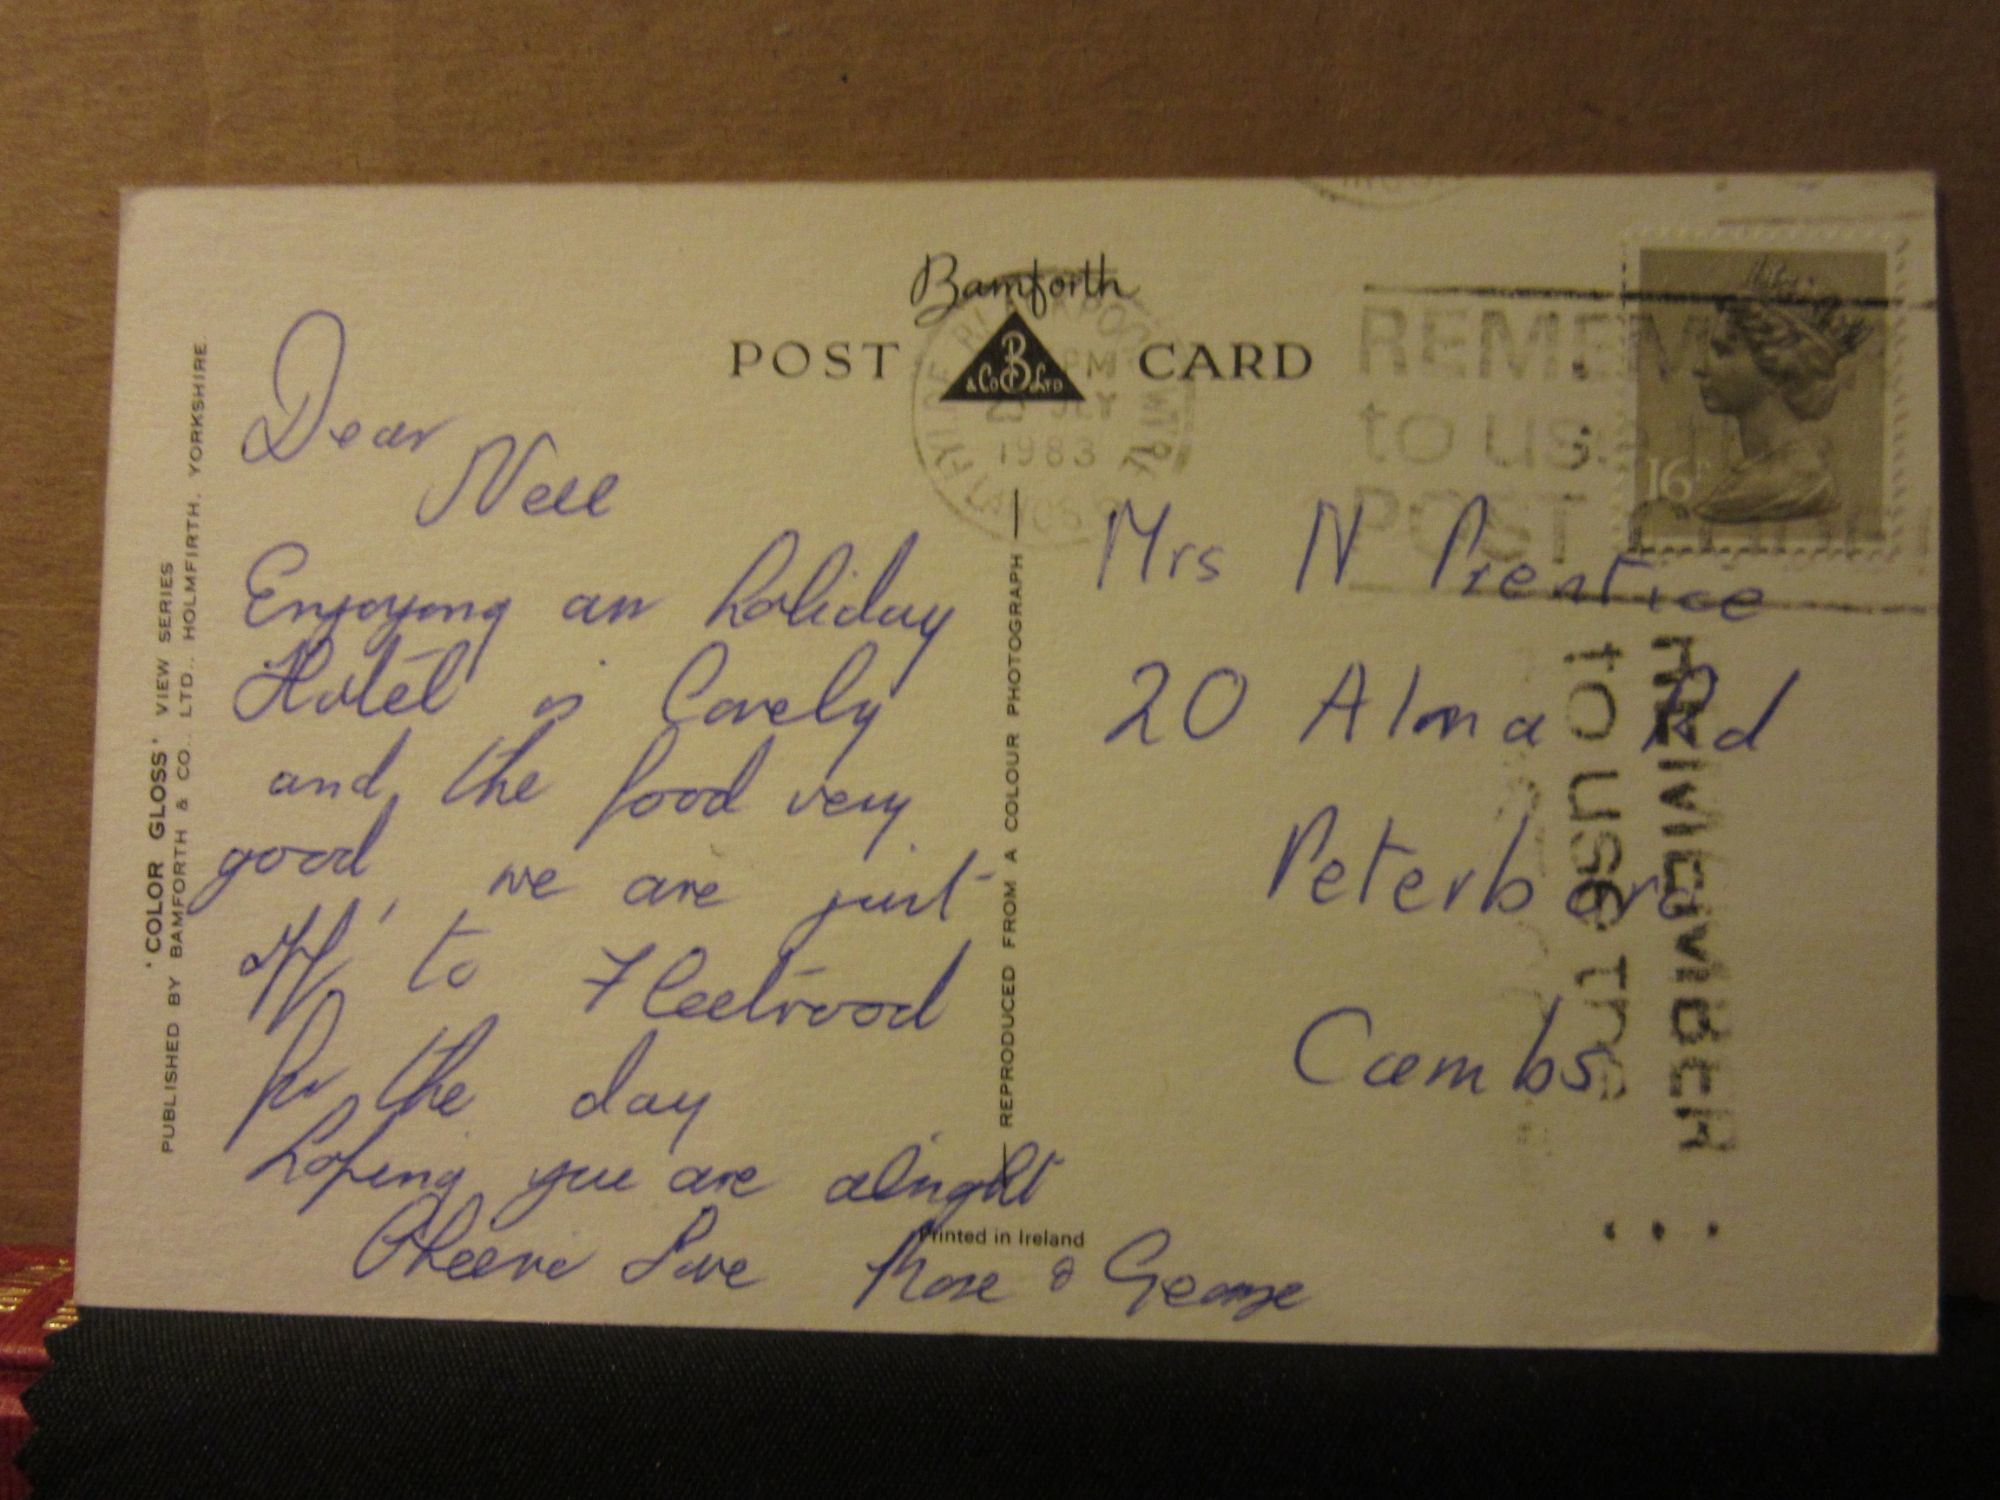 Bamforth
POST CARD
B
& Co LTD
BLACKPOOL
FYLDE
PM
1983
REMEM
to use
POST
16P
Dear
Nell
Enjoying our holiday
Hotel is lovely
and the food very
good, we are just
off to Fleetwood
for the day
hoping you are alright
Cheerio Love Rose & George
Mrs N Prentice
20 Alma Rd
Peterboro
Cambs
REMEMBER
to use the
'COLOR GLOSS' VIEW SERIES
PUBLISHED BY BAMFORTH & CO., LTD., HOLMFIRTH, YORKSHIRE.
REPRODUCED FROM A COLOUR PHOTOGRAPH
Printed in Ireland